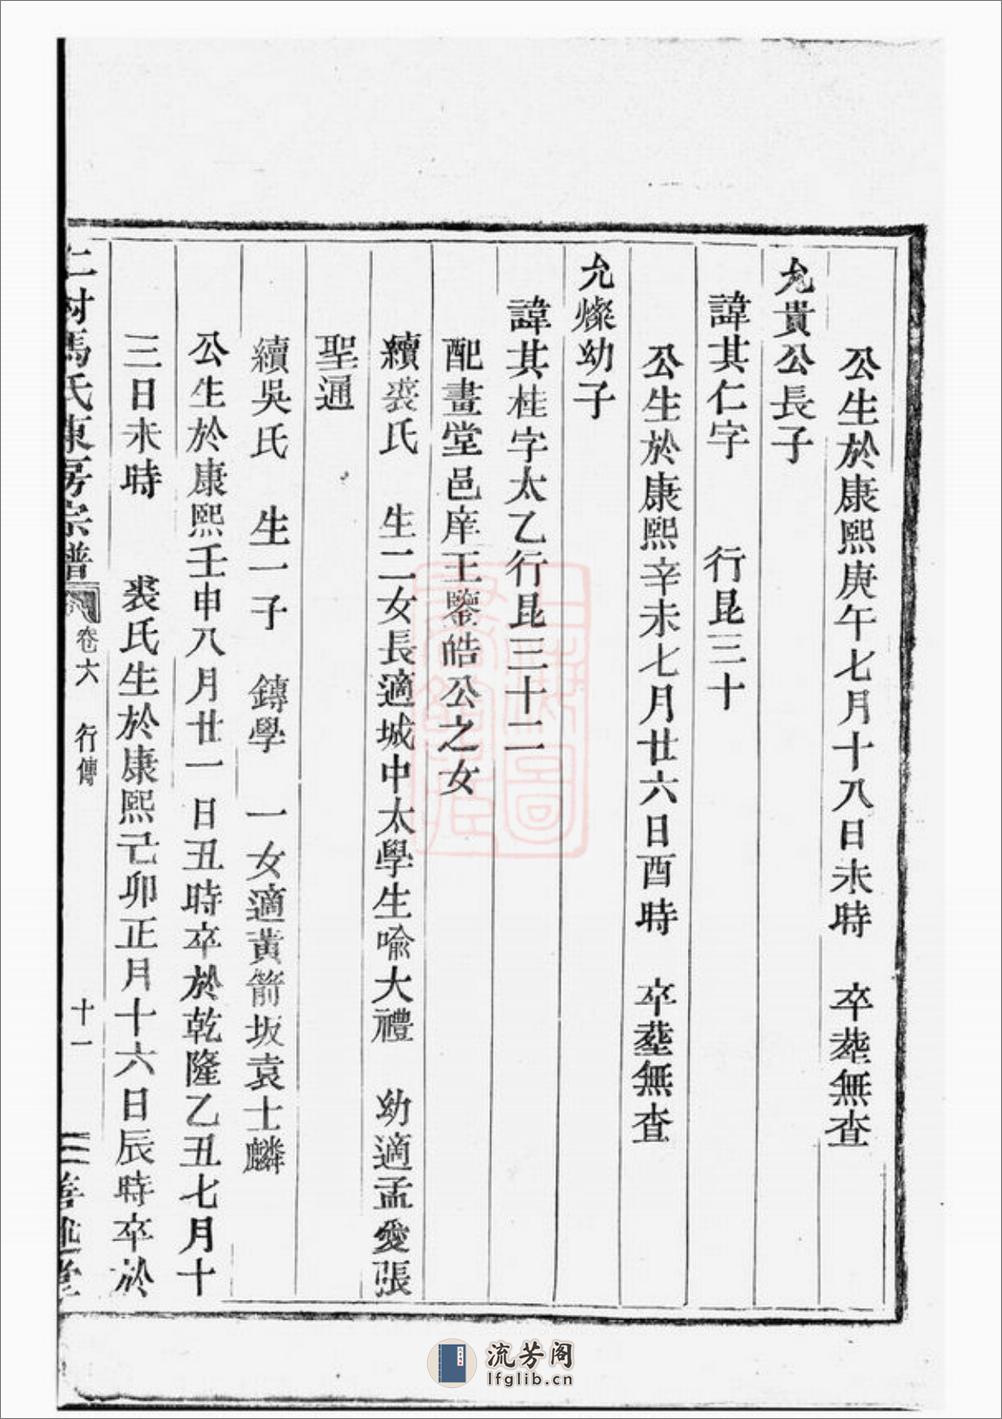 公生於康熙庚午七月十八日未時　卒塟無查
允貴公長子
諱其仁字　行昆三十
公生於康熙辛未七月廿六日酉時　卒塟無查
允燦幼子
諱其桂字太乙行昆三十二
配畫堂邑庠王鑒皓公之女
續裘氏　生二女長適城中太學生喻大禮　幼適孟愛張
聖通
續吳氏　生一子　鑄學　一女適黃箭坂袁士麟
公生於康熙壬申八月廿一日丑時卒於乾隆乙丑七月十
三日未時　裘氏生於康熙己卯正月十六日辰時卒於
仁村馬氏東房宗譜　卷六　行傳　十一　善述堂
上海圖書館藏
流芳阁
lfglib.cn